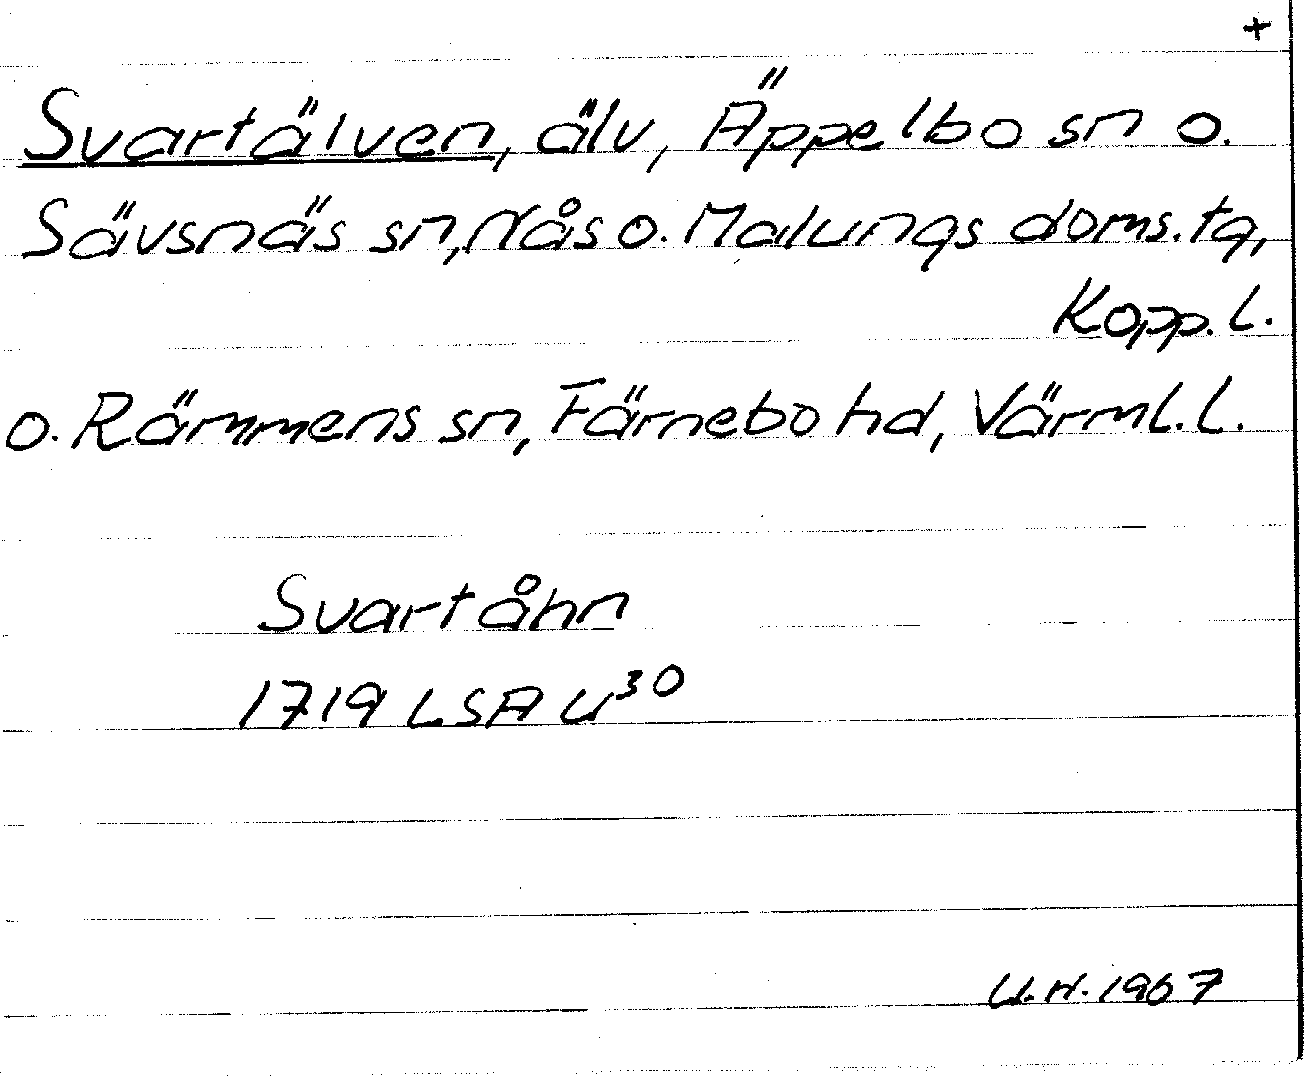 +
Svartälven, älv, Äppelbo sn o.
Sävsnäs sn, Nås o. Malungs doms. tg,
Kopp. l.
o. Rämmens sn, Färnebo hd, Värml. l.
Svartåhn
1719 LSA U³⁰
U.N. 1967